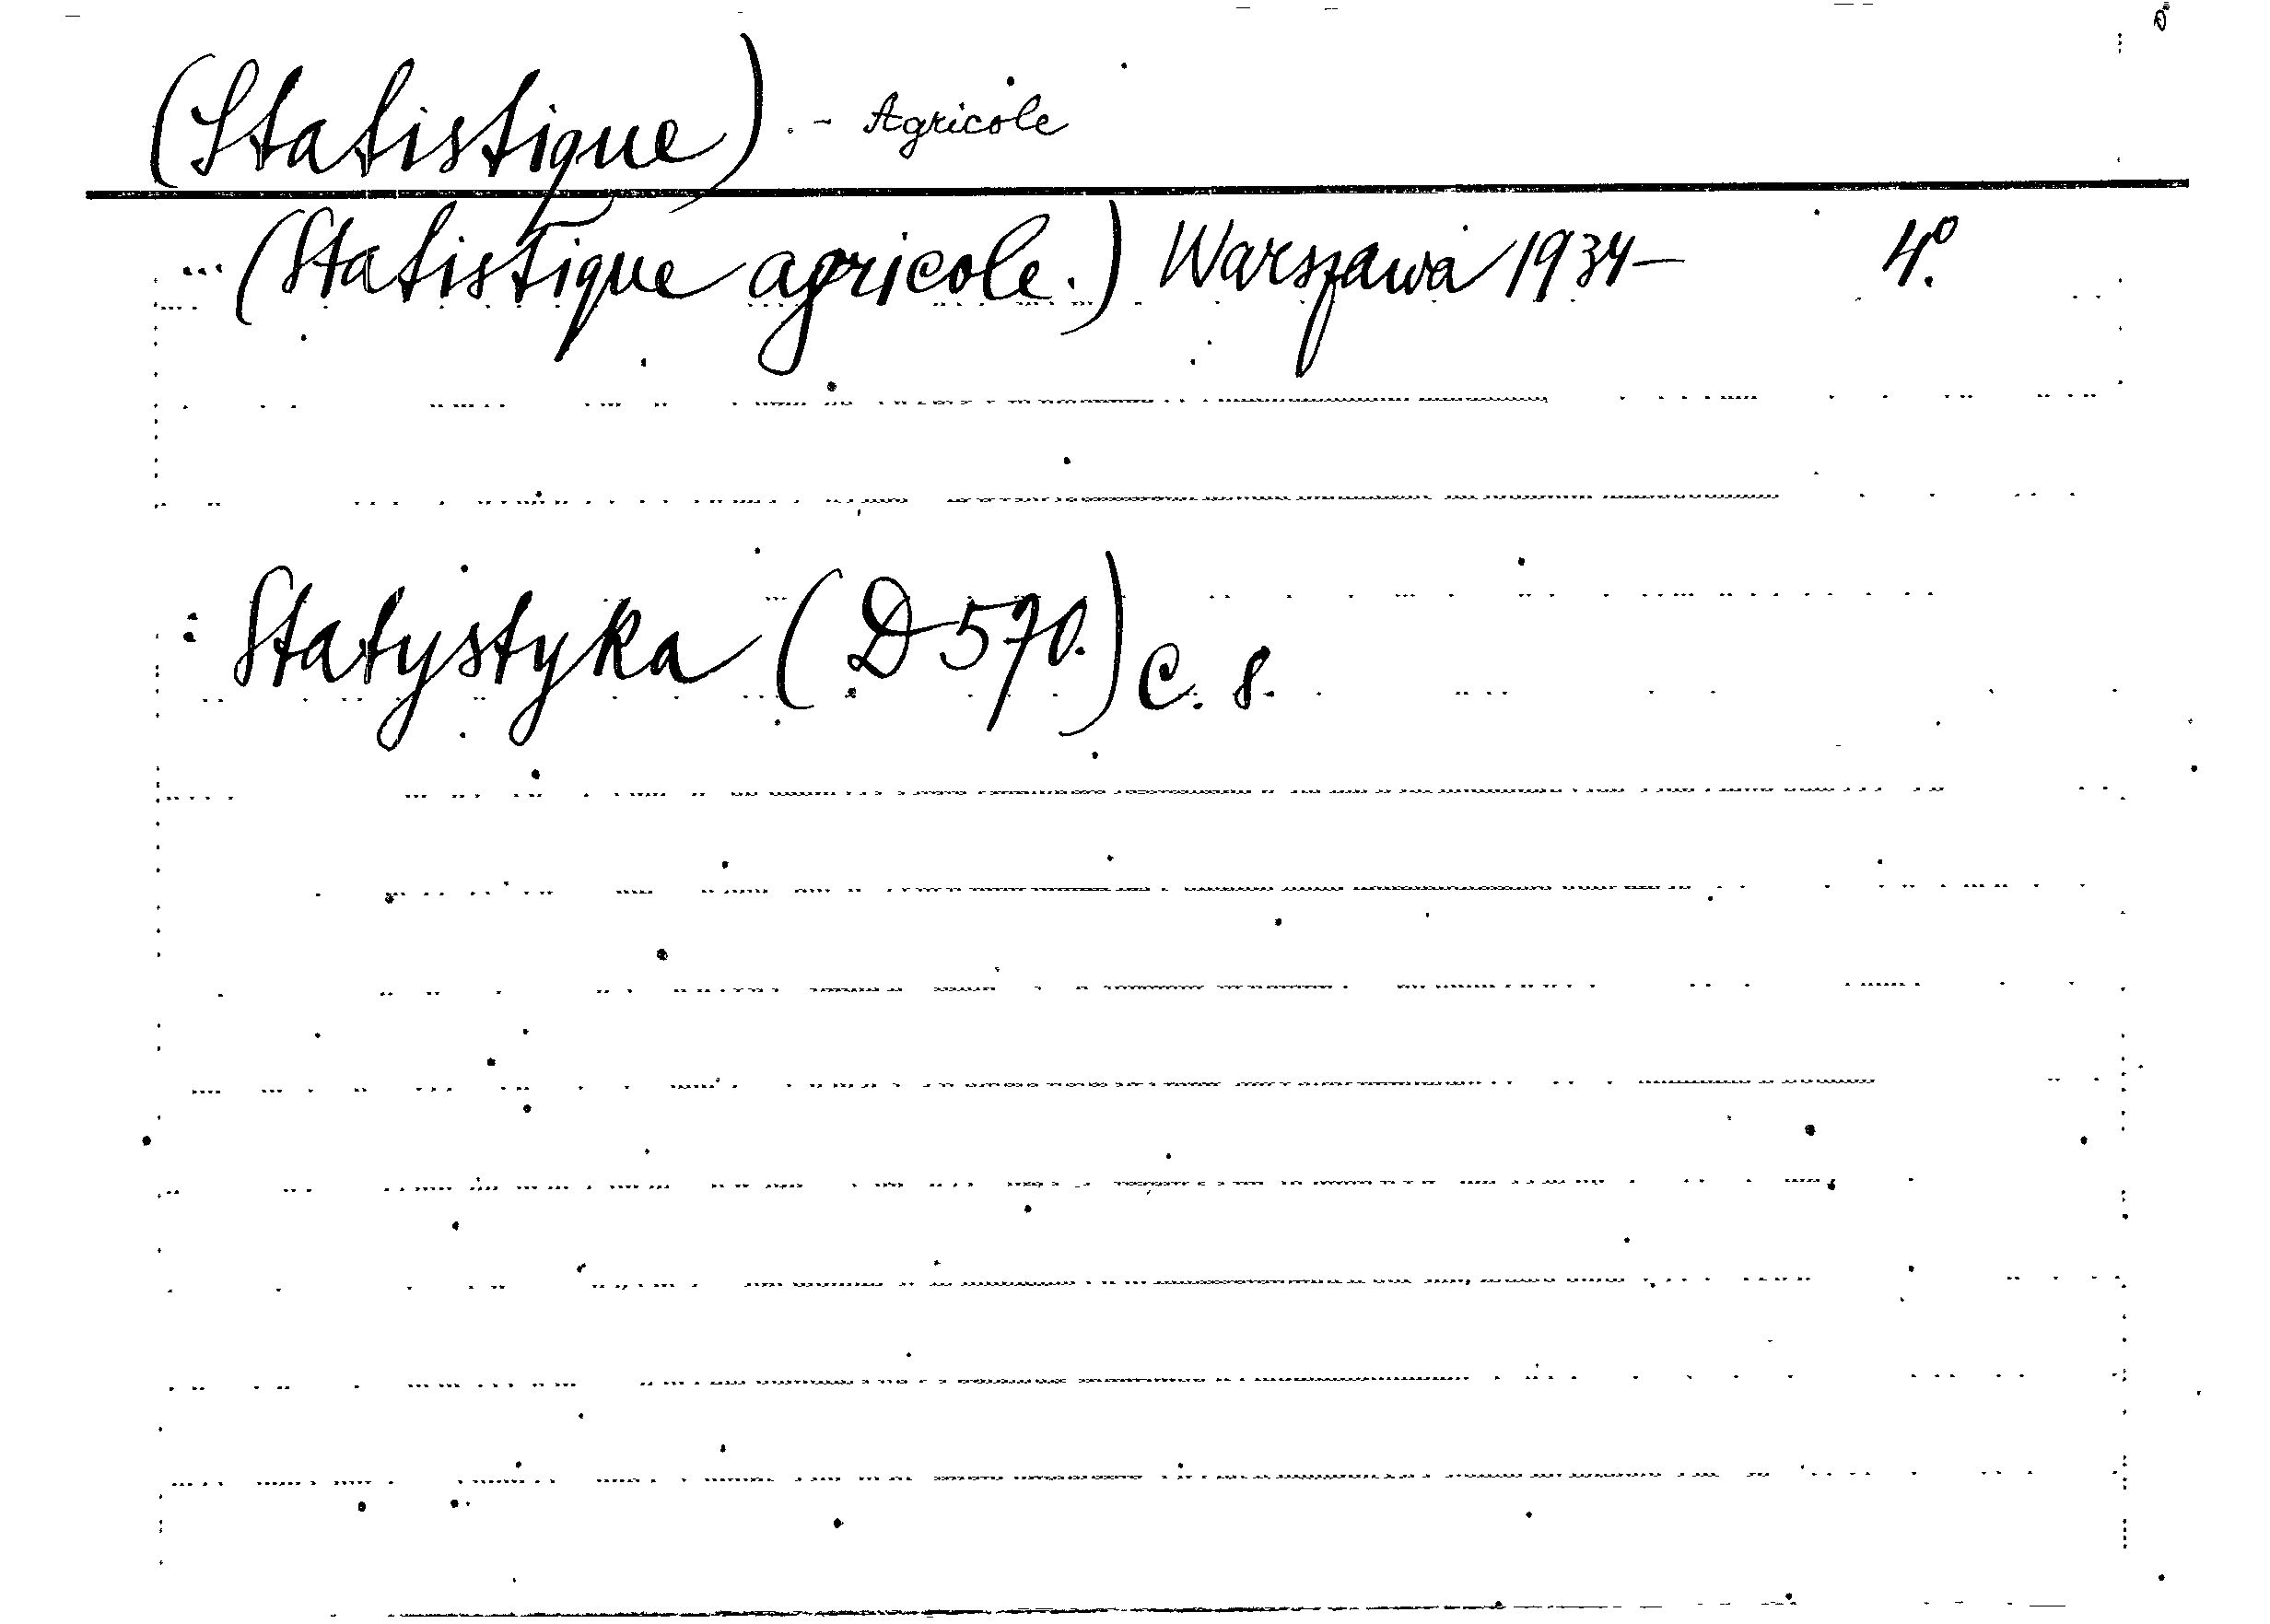 (Statistique). - Agricole
... (Statistique agricole.) Warszawa 1934— 4º.
: Statystyka (D 570.) C. s.